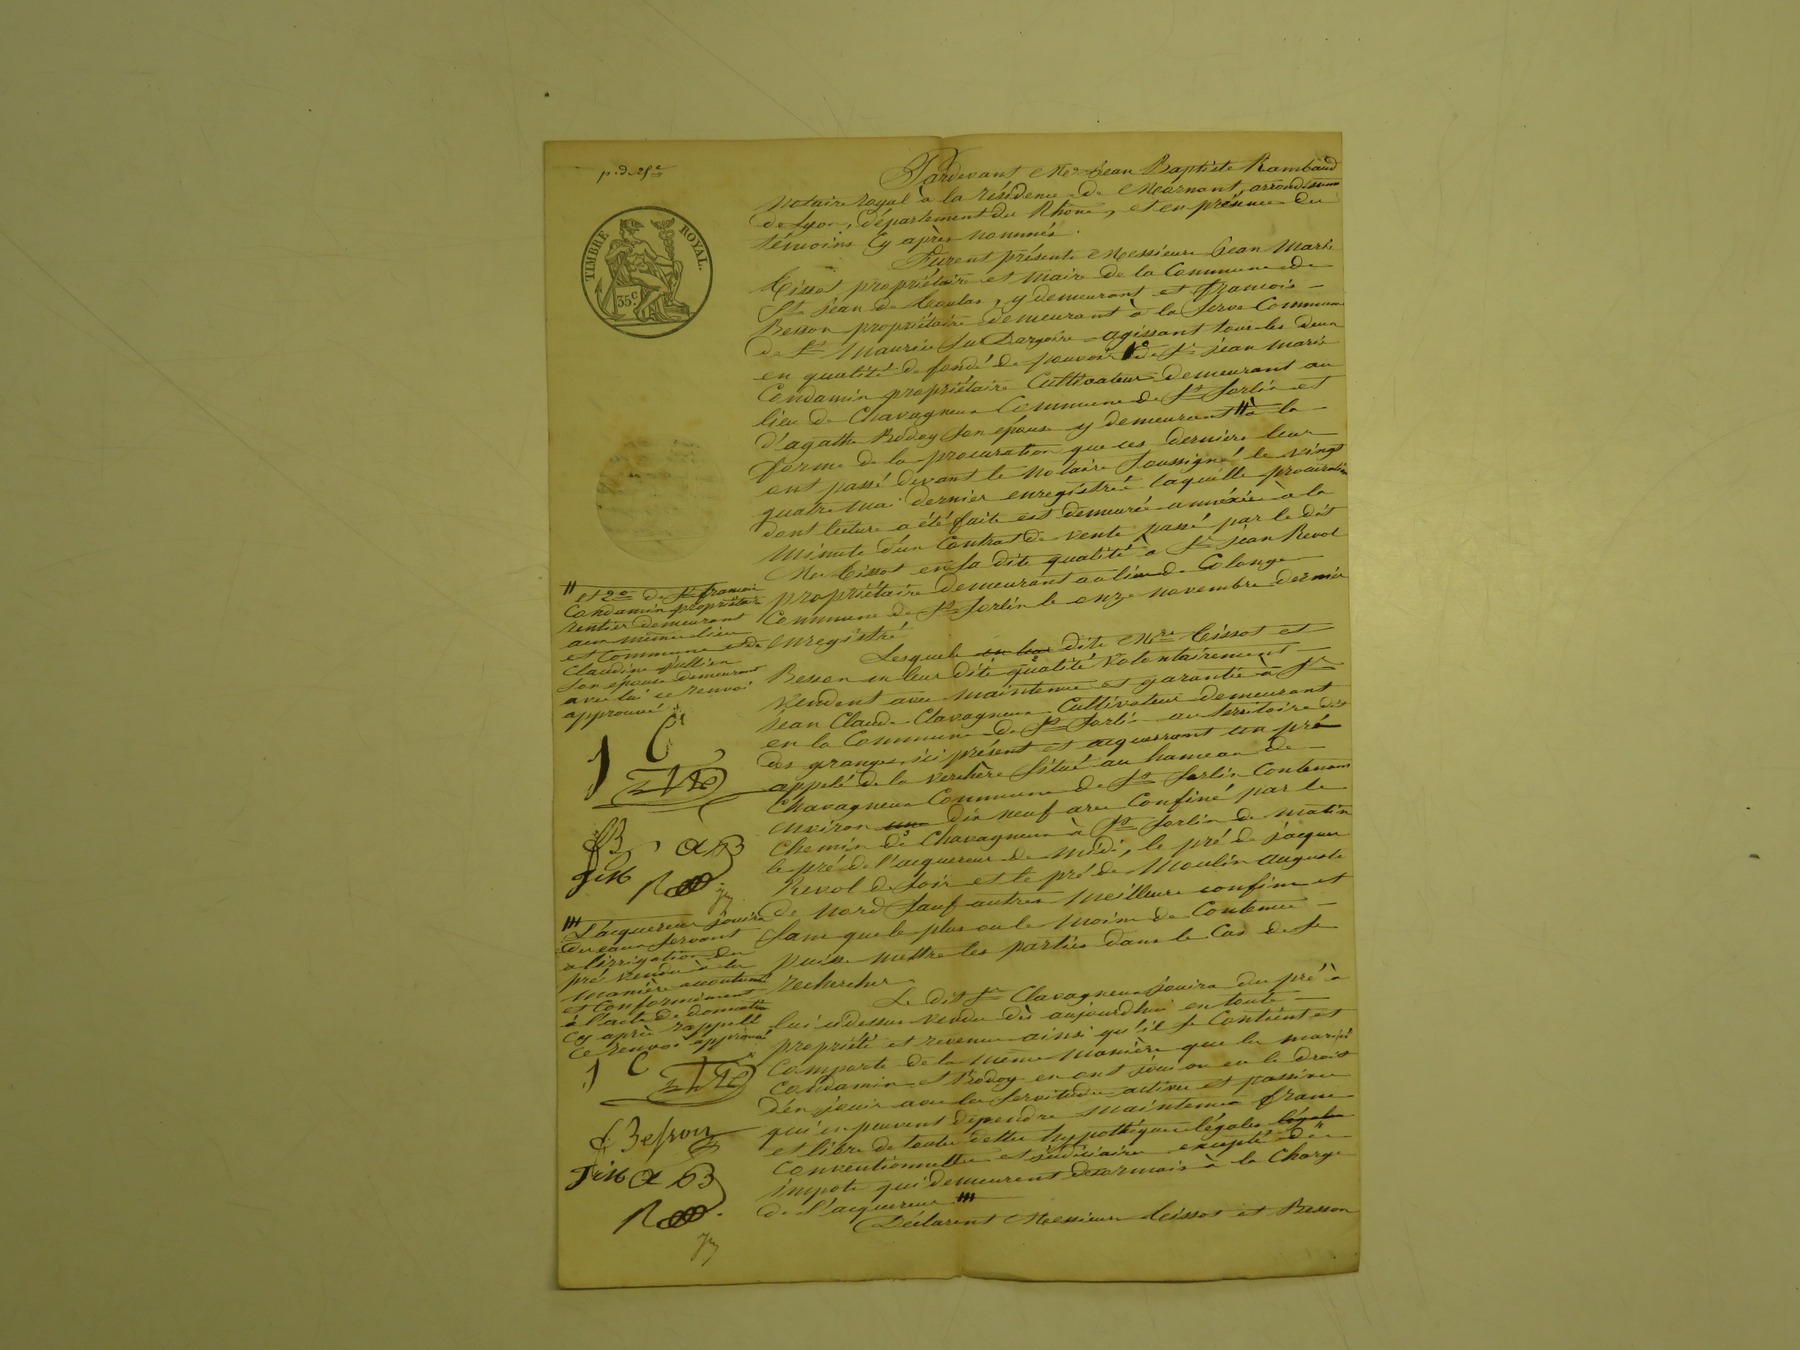 p. d. 25 c
TIMBRE ROYAL.
35 c.
Pardevant Me Jean Baptiste Rambaud
Notaire royal à la résidence de Mornant, arrondissem
de Lyon, département du Rhône, et en présence des
témoins Cy après nommés.
Furent présents Messieurs Jean Marie
Cissot propriétaire et maire de la Commune de
St jean de toulas, y demeurant et françois
Besson propriétaire demeurant à la Serve Commune
de St Maurice Sur Dargoire agissant tous les deux
en qualité de fondé de pouvoir 1o de Sr jean marie
Condamin propriétaire Cultivateur demeurant au
lieu de Chavagneux Commune de St Sorlin et
d'agathe Bodoy Son épouse y demeurant # à la
forme de la procuration que ces derniers leur
ont passé devant le Notaire Soussigné le vingt
quatre mai dernier enregistrée laquelle procuration
dont lecture a été faite est demeurée annéxée à la
Minute d'un Contrat de vente passé par le dit
Me Cissot en sa dite qualité à Sr jean Revol
propriétaire demeurant au lieu de Colonge
Commune de St Sorlin le onze novembre dernier
enregistré
Lesquels dits Mrs Cissot et
Besson en leur dite qualité volontairement
Vendent avec maintenue et garantie à Sr
jean Claude Clavagneux Cultivateur demeurant
en la Commune de St Sorlin au territoire dit
des granges, ici présent et acquerront un pré
appelé de la verchère Situé au hameau de
Chavagneux Commune de St Sorlin Contenant
environ dix neuf ares Confiné par le
Chemin de Chavagneux à St Sorlin de matin
le pré de l'acquereur de midi, le pré de jacques
Revol de Soir et le pré de Moulin auguste
de Nord Sauf autres Meilleurs confins et
Sans que le plus ou le Moins de Contenue
puisse mettre les parties dans le Cas de Se
rechercher
Le dit Sr Clavagneux jouira du pré à
lui cidessus vendu dès aujourdhui en toute
propriété et revenus ainsi qu'il Se Contient et
Comporte de la même manière que les mariés
Condamin et Bodoy en ont joui ou eu le droit
d'en jouir avec les Servitudes actives et passives
qui en peuvent dépendre Maintenus franc
et libre de toutes dettes hypothèques légales légales
Conventionnelles et judiciaires excepté des
impots qui demeurent désormais à la Charge
de l'acquereur #
Déclarent Messieurs Cissot et Besson
# et 2o de Sr françois
Condamin propriétaire
rentier demeurant
aux mêmes lieu
et Commune et de
Claudine jullien
Son épouse demeurant
avec lui ce renvoi
approuvé
J C
fB aB
JCM R
# L'acquereur jouira
des eaux Servant
à l'irrigation du
pré vendu à la
manière accoutumée
et Conformément
à l'acte de
Cy après rappelé
Ce renvoi approuvé
J C
f Besson
JCM aB
R